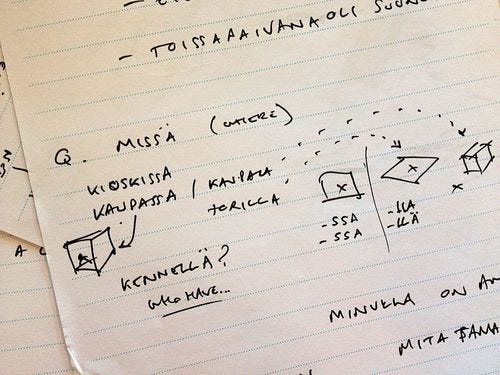 - TOISSAPAIVANA OLI SUUNN
Q. MISSÄ (WHERE)
KIOSKISSA
KAUPASSA / KAUPALLA
TORILLA
-SSA
-SSA
-LLA
-LLÄ
KENNELLÄ?
WHO HAVE...
MINULLA ON AN
MITA TAMA